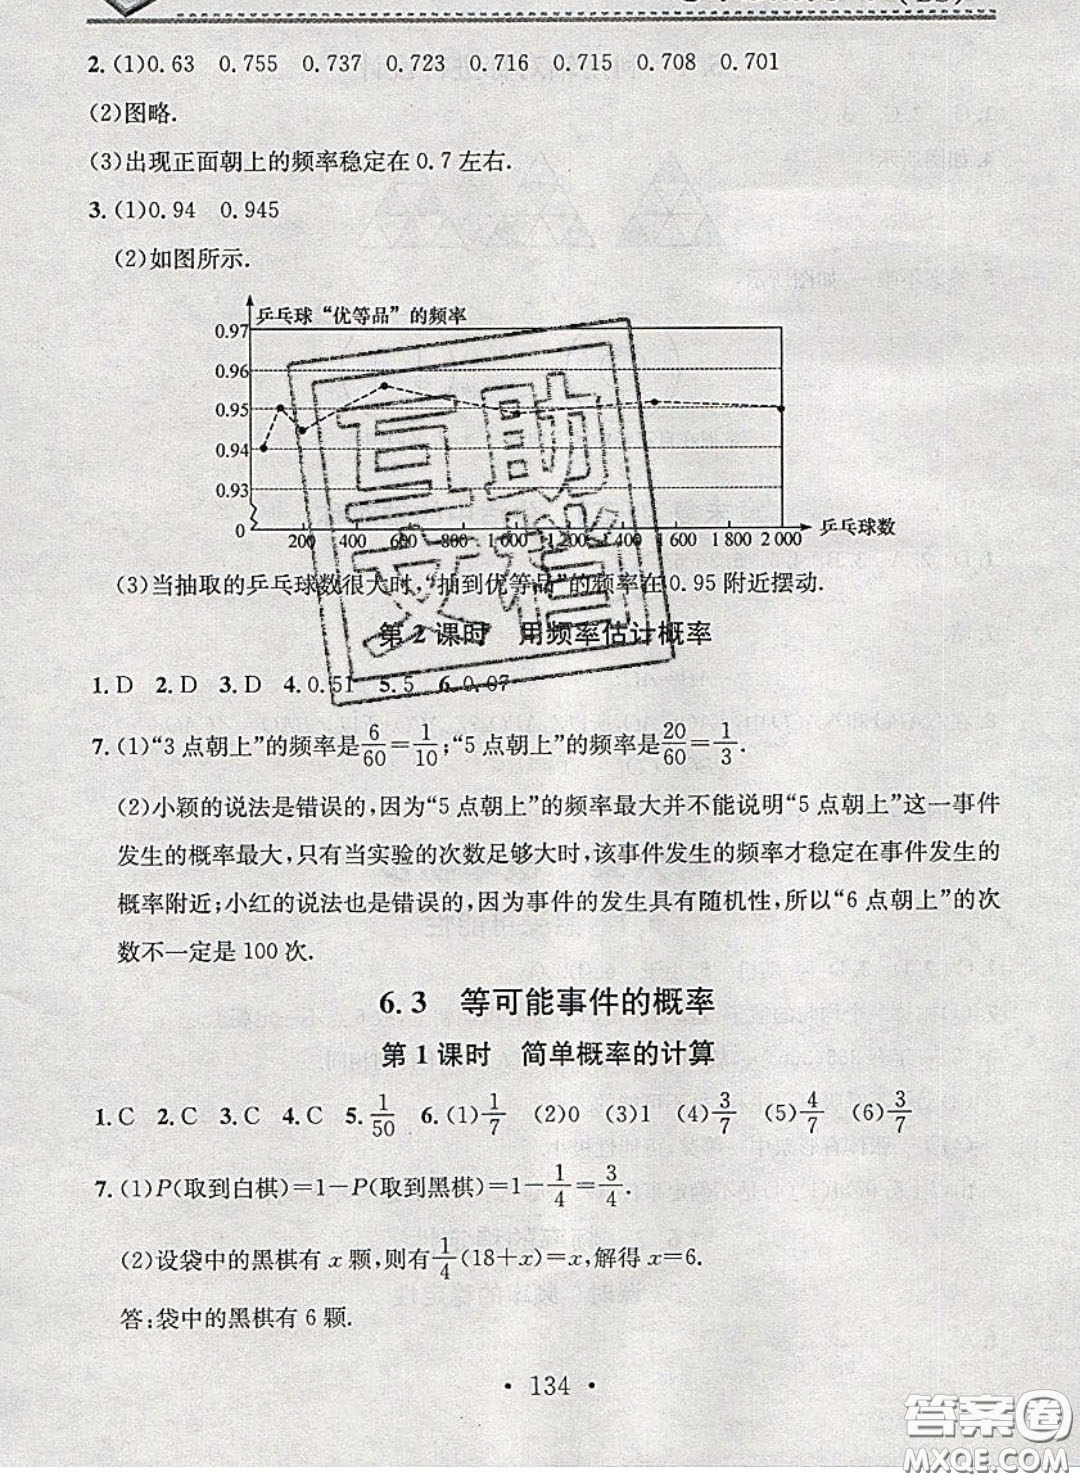 2.(1)0.63 0.755 0.737 0.723 0.716 0.715 0.708 0.701
(2)图略.
(3)出现正面朝上的频率稳定在0.7左右.
3.(1)0.94 0.945
(2)如图所示.
乒乓球“优等品”的频率
0.97
0.96
0.95
0.94
0.93
0
200 400 600 800 1 000 1 200 1 400 1 600 1 800 2 000 乒乓球数
(3)当抽取的乒乓球数很大时,“抽到优等品”的频率在0.95附近摆动.
第2课时 用频率估计概率
1.D 2.D 3.D 4.0.51 5.5 6.0.07
7.(1)“3点朝上”的频率是6/60=1/10;“5点朝上”的频率是20/60=1/3.
(2)小颖的说法是错误的,因为“5点朝上”的频率最大并不能说明“5点朝上”这一事件
发生的概率最大,只有当实验的次数足够大时,该事件发生的频率才稳定在事件发生的
概率附近;小红的说法也是错误的,因为事件的发生具有随机性,所以“6点朝上”的次
数不一定是100次.
6.3 等可能事件的概率
第1课时 简单概率的计算
1.C 2.C 3.C 4.C 5.1/50 6.(1)1/7 (2)0 (3)1 (4)3/7 (5)4/7 (6)3/7
7.(1)P(取到白棋)=1-P(取到黑棋)=1-1/4=3/4.
(2)设袋中的黑棋有x颗,则有1/4(18+x)=x,解得x=6.
答:袋中的黑棋有6颗.
· 134 ·
答案圈
MXQE.COM